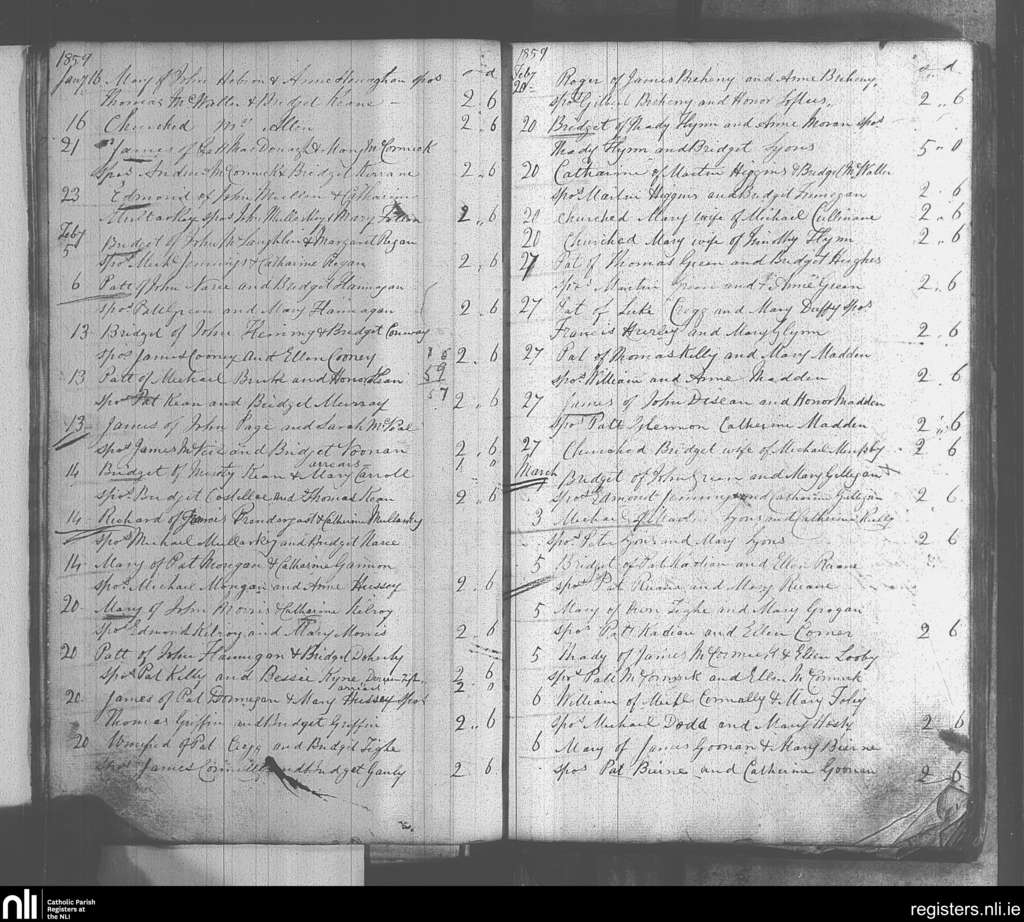 1859
Jany 16 Mary of John Hobin & Anne Monaghan spos o d
Thomas McWaller & Bridget Keane - 2 6
16 Churched Mrs Allen 2 . 6
21 James of & Mary McCormick
Spos Andrew McCormick & Bridget Kirrane 2 . 6
23 Edmond of John Mullen & Catharine
Mullarkey spos John Mullarkey & Mary 2 . 6
Feby
5 Bridget of John McLaughlin & Margaret Regan
spos Michl Jennings & Catharine Regan 2 . 6
6 Patt of John Naree and Bridget Flannagan
spos Patt Green and Mary Flannagan 2 . 6
13 Bridget of John Fleming & Bridget Conway
spos James Cooney and Ellen Cooney 2 . 6
59
13 Patt of Michael Burke and Honor
57
spos Pat Kean and Bridget Murray 2 . 6
13 James of John Page and Sarah
spos James and Bridget Noonan 2 . 6
arrears 1 0
14 Bridget of Kean & Mary Carroll
spos Bridget Costelloe and Thomas Kean 2 6
14 Richard of Francis Prandergast & Catherine Mullarkey
spos Michael Mullarkey and Bridget Naree
14 Mary of Pat Mongan & Catharine Gannon
spos Michael Mongan and Anne Hussey 2 . 6
20 Mary of John Morris & Catharine Kilroy
spos Edmond Kilroy and Mary Morris 2 . 6
20 Patt of John Flannigan & Bridget Doherty
spos Pat Kelly and Bessie Kyne 2 6
arrears 2 0
20 James of Pat Dornigan & Mary Hussey spos
Thomas Griffin and Bridget Griffin 2 . 6
20 Winefred of Pat Cregg and Bridget Tighe
spos James and Bridget Ganly 2 6
1859
Feby
20 Roger of James Breheny and Anne Breheny, o d
spos Gilbert Breheny and Honor Loftus, 2 .. 6
20 Bridget of Thady Flynn and Anne Moran spos
Thady Flynn and Bridget Lyons 5 . 0
20 Catharine of Martin Higgins & Bridget McWaller
spos Martin Higgins and Bridget Finnegan 2 . 6
20 Churched Mary wife of Michael Cullinane 2 . 6
20 Churched Mary wife of Timothy Flynn 2 .. 6
27 Pat of Thomas Green and Bridget Hughes
spos Martin Green and Anne Green 2 . 6
27 Pat of Luke Cregg and Mary Duffy spos
Francis Hurley and Mary Flynn 2 . 6
27 Pat of Thomas Kelly and Mary Madden
spos William and Anne Madden 2 . 6
27 James of John and Honor Madden
spos Patt Glennon Catherine Madden 2 . 6
27 Churched Bridget wife of Michael 2 6
March
Bridget of John Green and Mary Gilligan
spos Edmont Jennings and Catharine Gilligan 2 6
3 Michael of Lyons and Catherine Kelly
spos Peter Lyons and Mary Lyons 2 6
5 Bridget of Patt Kadian and Ellen Ruane
spos Pat Ruane and Mary Ruane
5 Mary of Owen Tighe and Mary Grogan
spos Patt Kadian and Ellen Comer 2 6
5 Thady of James McCormick & Ellen Looby
spos Patt McCormick and Ellen McCormick
6 William of Michl Connally & Mary Foley
spos Michael Dodd and Mary Hosty 2 6
6 Mary of James Goonan & Mary Bierne
spos Pat Bierne and Catherine Goonan 2 6
nli Catholic Parish
Registers at
the NLI
registers.nli.ie